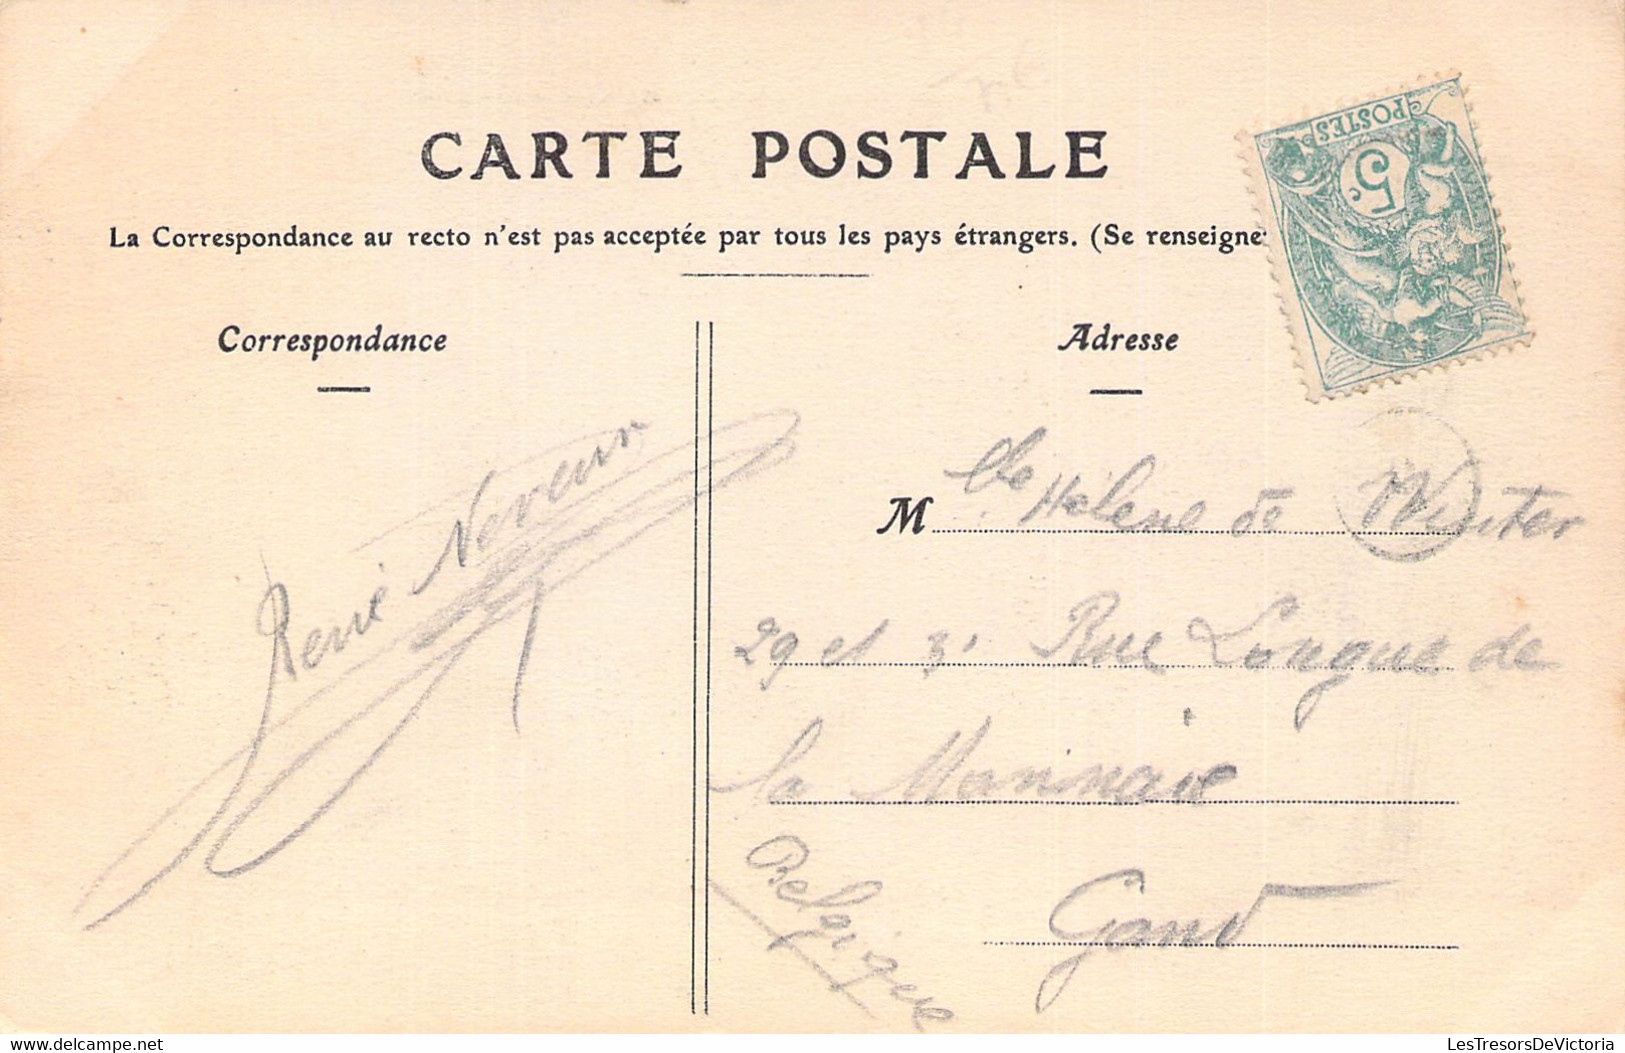 CARTE POSTALE
La Correspondance au recto n'est pas acceptée par tous les pays étrangers. (Se renseigne
POSTES
5c
Correspondance
Adresse
René Neveur
M lle Hélene de Winter
29 et 31 Rue Longue de
la Monnaie
Gand
Belgique
LesTresorsDeVictoria